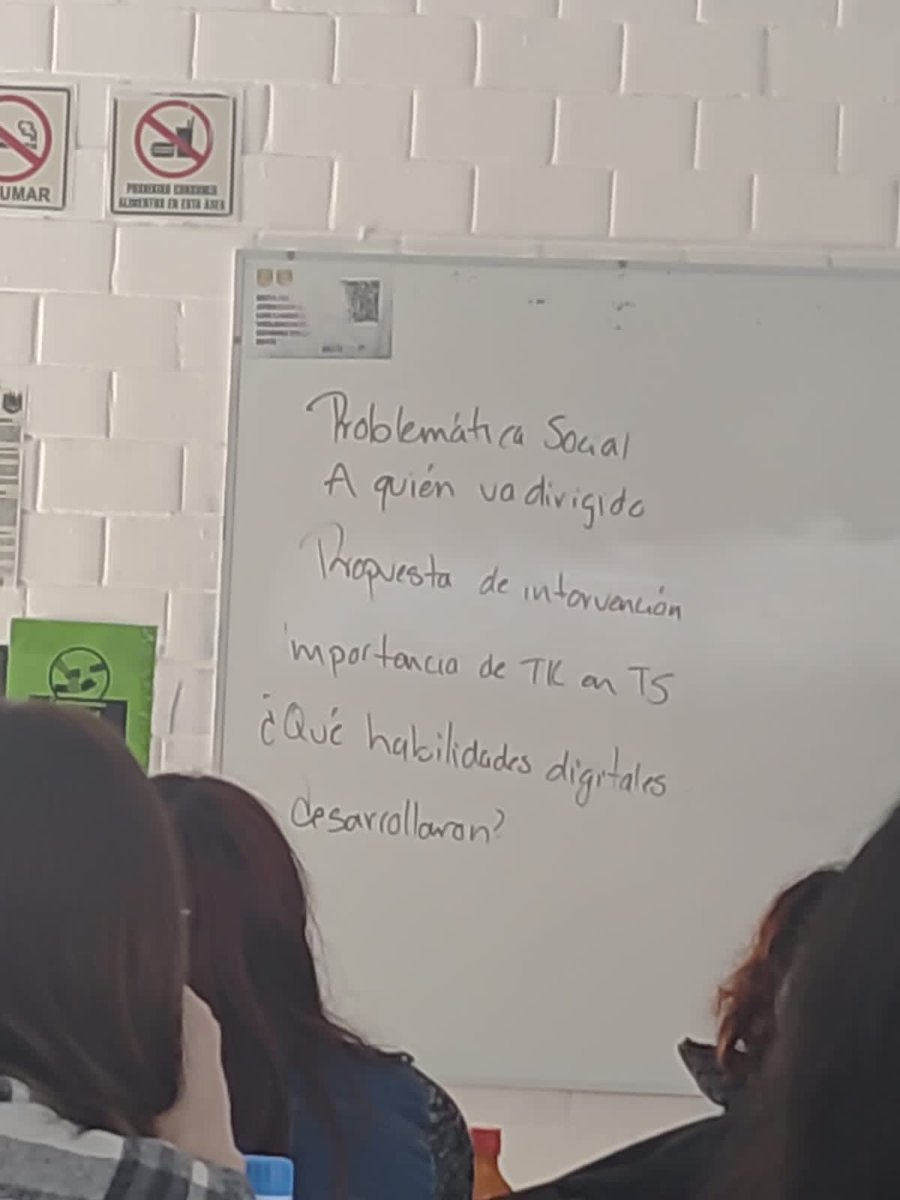 UMAR
PROHIBIDO CONSUMIR
ALIMENTOS EN ESTA ÁREA
Problemática Social
A quién va dirigido
Propuesta de intervención
importancia de TIC en TS
¿Qué habilidades digitales
desarrollaron?